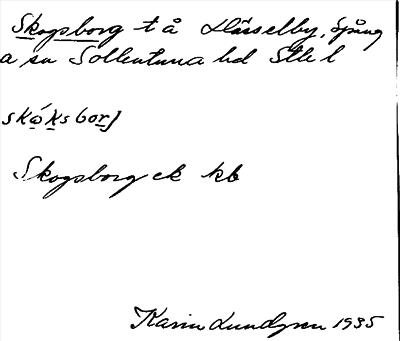 Skogsborg t å Hässelby, Spång
a sn Sollentuna hd Sthl l
skó̤ksborj
Skogsborg ek kb
Karin Lundgren 1935